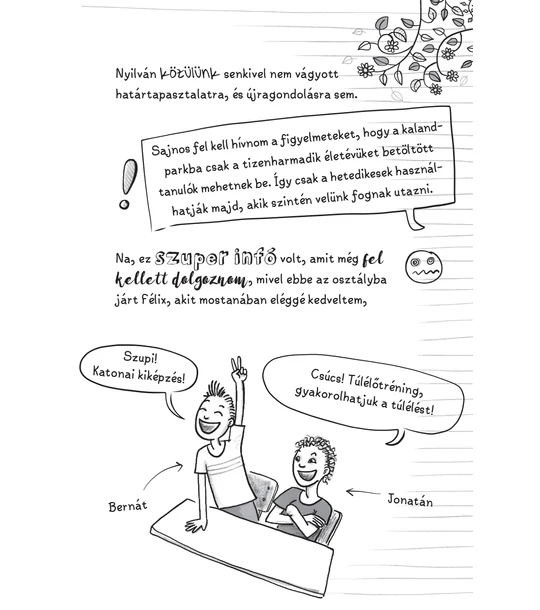 Nyilván közülünk senkivel nem vágyott
határtapasztalatra, és újragondolásra sem.
Sajnos fel kell hívnom a figyelmeteket, hogy a kaland-
parkba csak a tizenharmadik életévüket betöltött
tanulók mehetnek be. Így csak a hetedikesek használ-
hatják majd, akik szintén velünk fognak utazni.
Na, ez szuper infó volt, amit még fel
kellett dolgoznom, mivel ebbe az osztályba
járt Félix, akit mostanában eléggé kedveltem,
Szupi!
Katonai kiképzés!
Csúcs! Túlélőtréning,
gyakorolhatjuk a túlélést!
Bernát
Jonatán